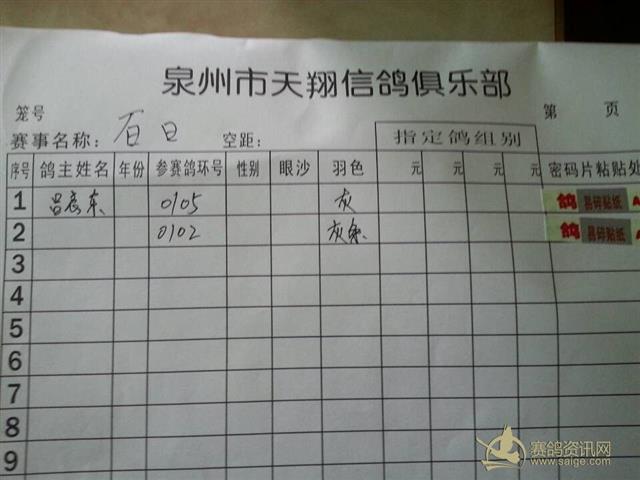 泉州市天翔信鸽俱乐部
笼号 第 页
赛事名称: 百日 空距: 指定鸽组别
序号 鸽主姓名 年份 参赛鸽环号 性别 眼沙 羽色 元 元 元 元 密码片粘贴处
1 吕 东 0105 灰 鸽 易碎贴纸
2 0102 灰条 鸽 易碎贴纸
3
4
5
6
7
8
9
赛鸽资讯网
www.saige.com